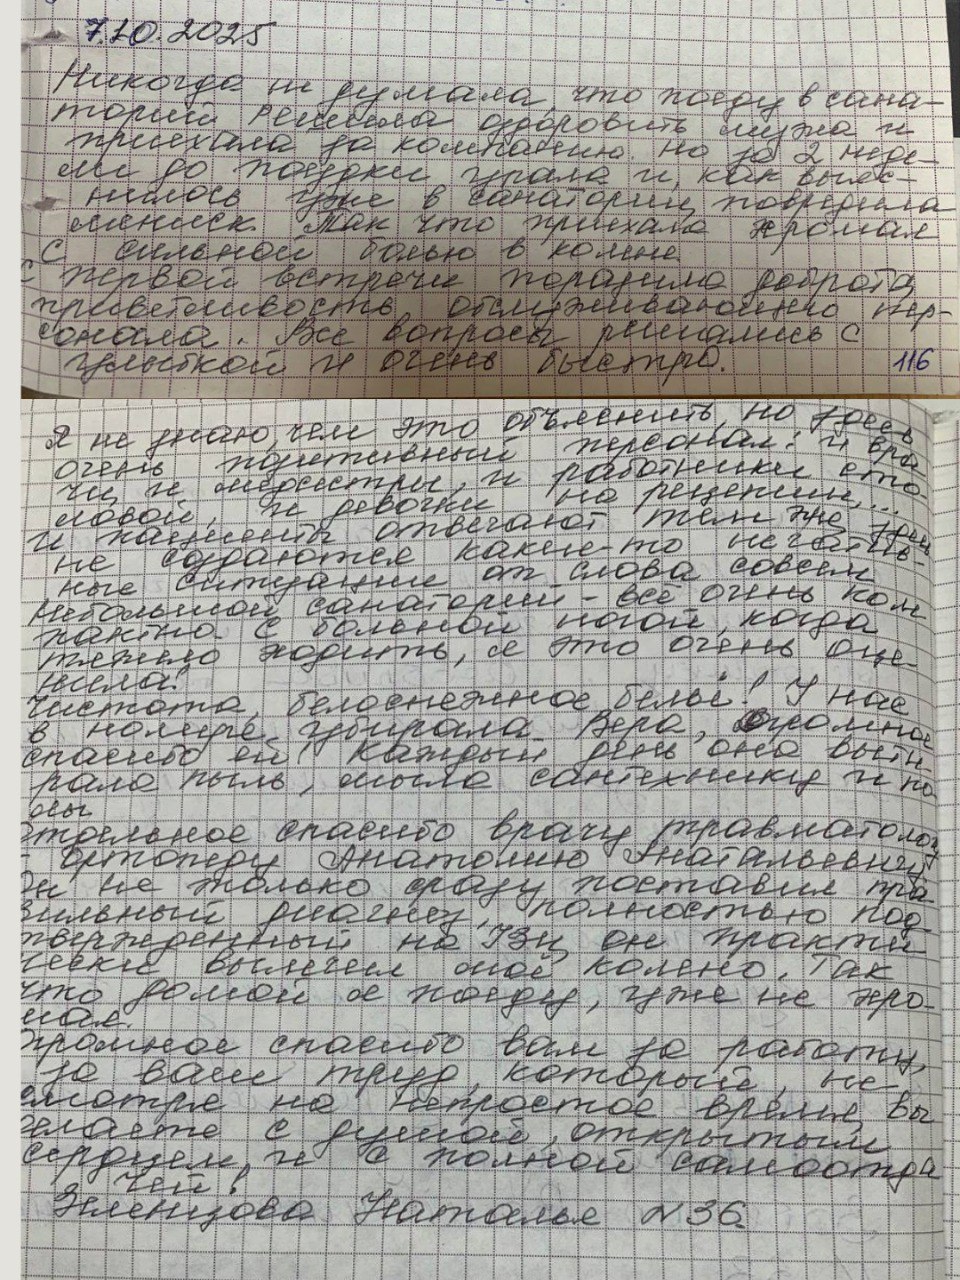 7.10.2025
Никогда не думала, что поеду в сана-
торий. Решила оздоровить мужа и
приехала за компанию. Но за 2 неде-
ли до поездки упала и, как выяс-
нилось уже в санатории, повредила
мениск. Так что приехала хромая
с сильной болью в колене.
С первой встречи поразила доброта,
приветливость обслуживающего пер-
сонала. Все вопросы решались с
улыбкой и очень быстро.
116
Я не знаю, чем это объяснить, но здесь
очень позитивный персонал: и вра
чи, и медсестры, и работники сто-
ловой, и девочки на рецепшн...
И пациенты отвечают тем же, здесь
не создаются какие-то негатив-
ные ситуации от слова совсем
Небольшой санаторий - всё очень ком
пактно. С больной ногой, когда
тяжело ходить, я это очень оце-
нила!
Чистота, белоснежное бельё! У нас
в номере убирала Вера, огромное
спасибо ей! Каждый день она выти-
рала пыль, мыла сантехнику и по
лы
Отдельное спасибо врачу травматологу
- ортопеду Анатолию Анатальевичу
Он не только сразу поставил пра-
вильный диагноз, полностью под-
твержденный на УЗИ, он практи
чески вылечил моё колено. Так
что домой я поеду, уже не хро-
мая.
Огромное спасибо вам за работу,
за ваш труд, который, не
смотря на непростое время, вы
делаете с душой, открытым
сердцем и с полной самоотда
чей!
Наталья №36